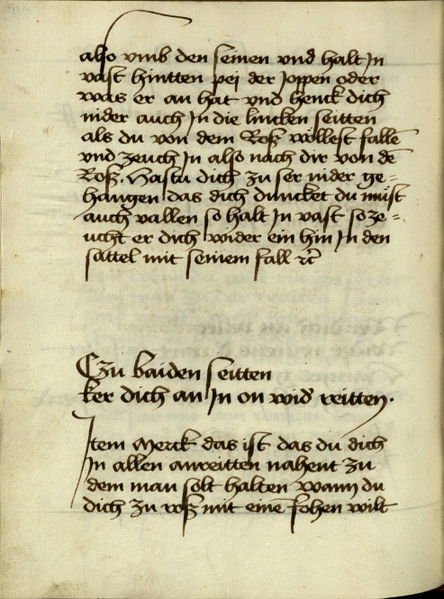 also vmb den seinen vnd halt Jn
vast hintten pei der Joppen oder
was er an hat vnd henck dich
nider auch Jn die lincken seitten
als du von dem Roß wöllest falle
vnd zeuch Jn also nach dir von dē
Roß. Hastu dich zu ser nider ge=
hangen das dich duncket du müst
auch vallen so halt Jn vast so ze=
ucht er dich wider ein hin Jn den
sattel mit seinem fall ꝛc̄
Czu baiden seitten
ker dich an Jn on wid' reitten.
Jtem Merck das ist das du dich
Jn allen anreitten nahent zu
dem man solt halten wann du
dich zu roß mit einē sohen wilt